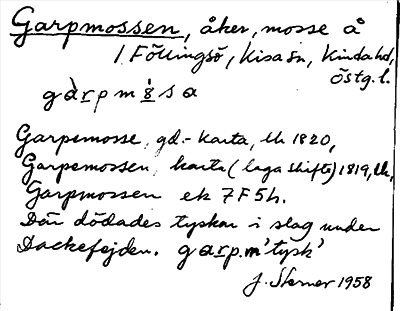 Garpmossen, åker, mosse å
1 Föllingsö, Kisa sn, Kinda hd,
Östg. l.
gàrpmòsa
Garpemosse, gd.-karta, lk 1820,
Garpemossen, karta (laga skifte) 1819, lk,
Garpmossen ek 7F5h.
Där dödades tyskar i slag under
Dackefejden. garp m 'tysk'
J. Sterner 1958